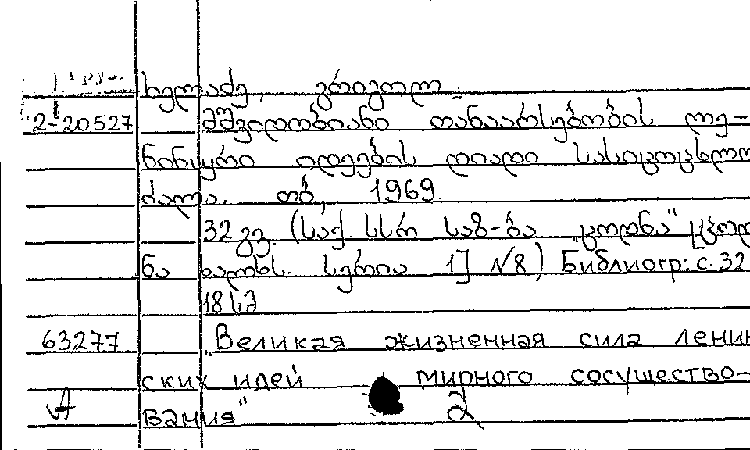 ხელაძე, გრიგოლ
2-20527 მშვიდობიანი თანაარსებობის ლე-
ნინური იდეების დიადი სასიცოცხლო
ძალა. თბ, 1969
32 გვ. (საქ სსრ საზ-ბა "ცოდნა"
ნა სერია 1] №8) Библиогр: с. 32
63277 "Великая жизненная сила ленин
ских идей мирного сосущество-
вания"